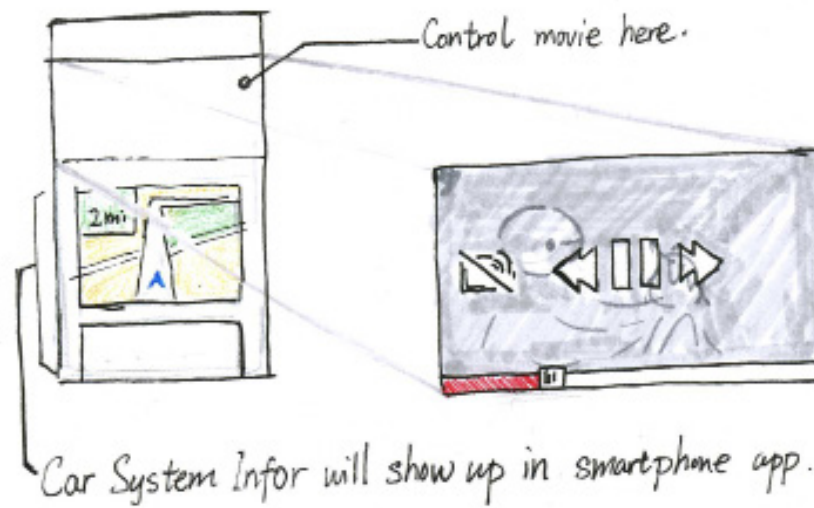 Control movie here.
2mi
Car System Infor will show up in smartphone app.